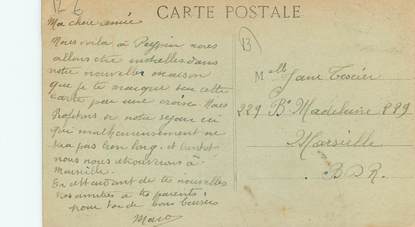 CARTE POSTALE
Ma chère amie
Nous voilà à Peypin nous
allons être installés dans
notre nouvelle maison
que je te marque sur cette
carte par une croix. Nous
Profitons de notre séjour ici
qui malheureusement ne
sera pas bien long. et bientôt
nous nous retrouverons à
Marseille.
En attendant de te nouvelles
amitiés à tes parents
pour toi de bons baisers
B
Melle Jane
229 Bd Madeleine 229
Marseille
B D R.